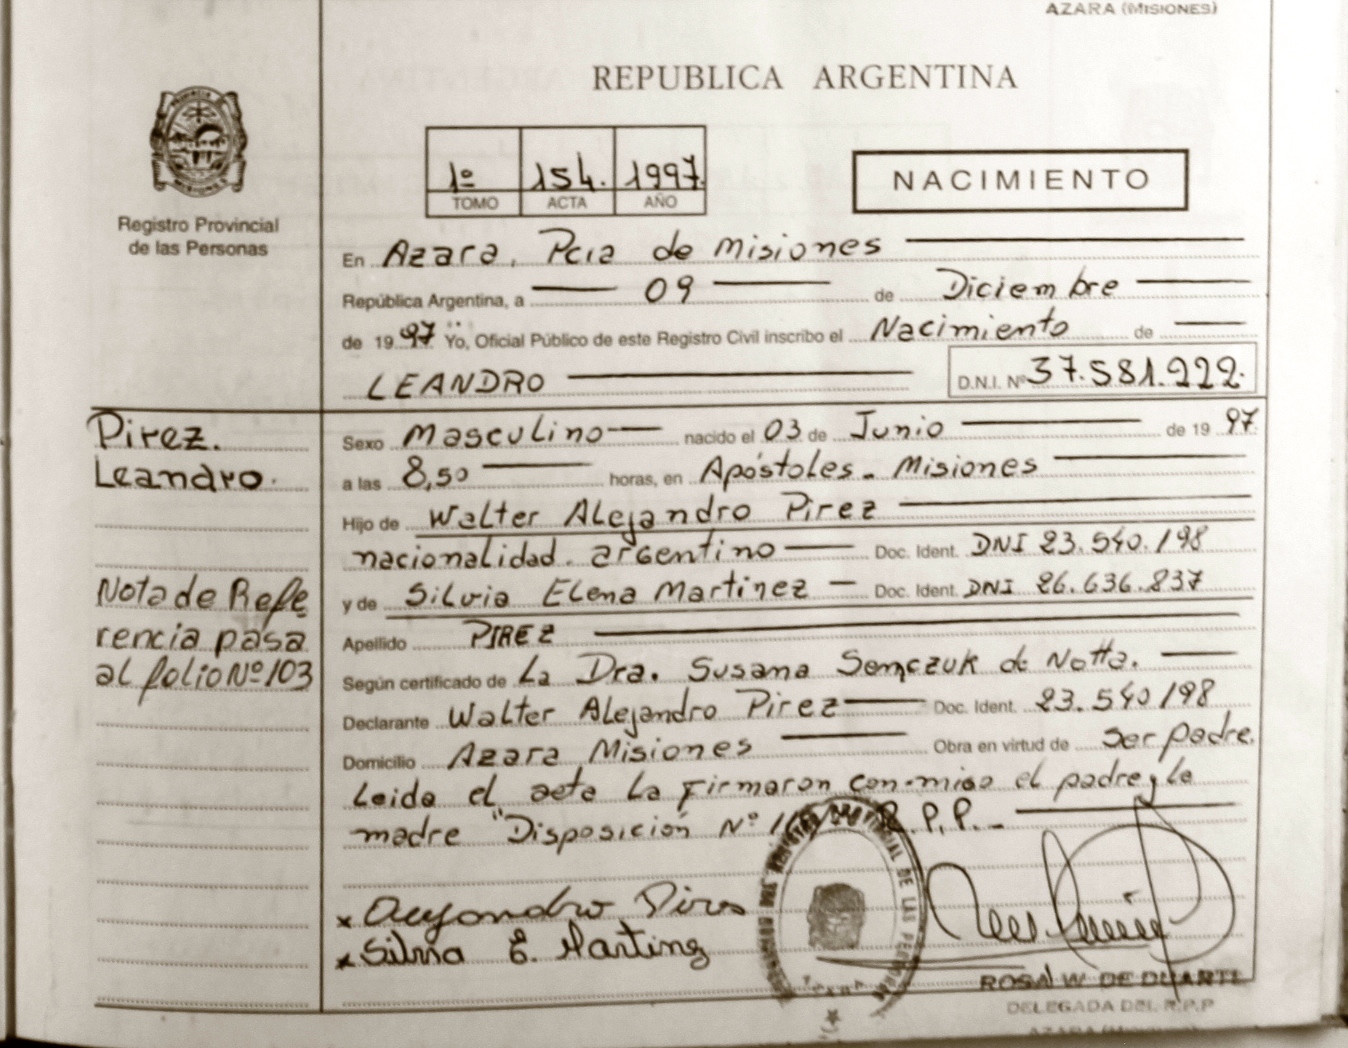 AZARA (MISIONES)
REPUBLICA ARGENTINA
Registro Provincial
de las Personas
1º 154. 1997.
TOMO ACTA AÑO
NACIMIENTO
En Azara, Pcia de Misiones
República Argentina, a 09 de Diciembre
de 1997 Yo, Oficial Público de este Registro Civil inscribo el Nacimiento de
LEANDRO D.N.I. Nº 37.581.222.
Pirez.
Leandro.
Sexo Masculino nacido el 03 de Junio de 1997
a las 8,50 horas, en Apóstoles - Misiones
Hijo de Walter Alejandro Pirez
nacionalidad. argentino Doc. Ident. DNI 23.540.198
y de Silvia Elena Martinez Doc. Ident. DNI 26.636.837
Nota de Refe
rencia pasa
al folio Nº 103
Apellido PIREZ
Según certificado de La Dra. Susana Semczuk de Notta.
Declarante Walter Alejandro Pirez Doc. Ident. 23.540198
Domicilio Azara Misiones Obra en virtud de ser padre.
Leida el acta la Firmaron con-migo el padre y la
madre "Disposición Nº R.P.P.-
x Alejandro Pires
x Silvia E. Martinez
ROSA W. DE DUARTE
DELEGADA DEL R.P.P
AZARA